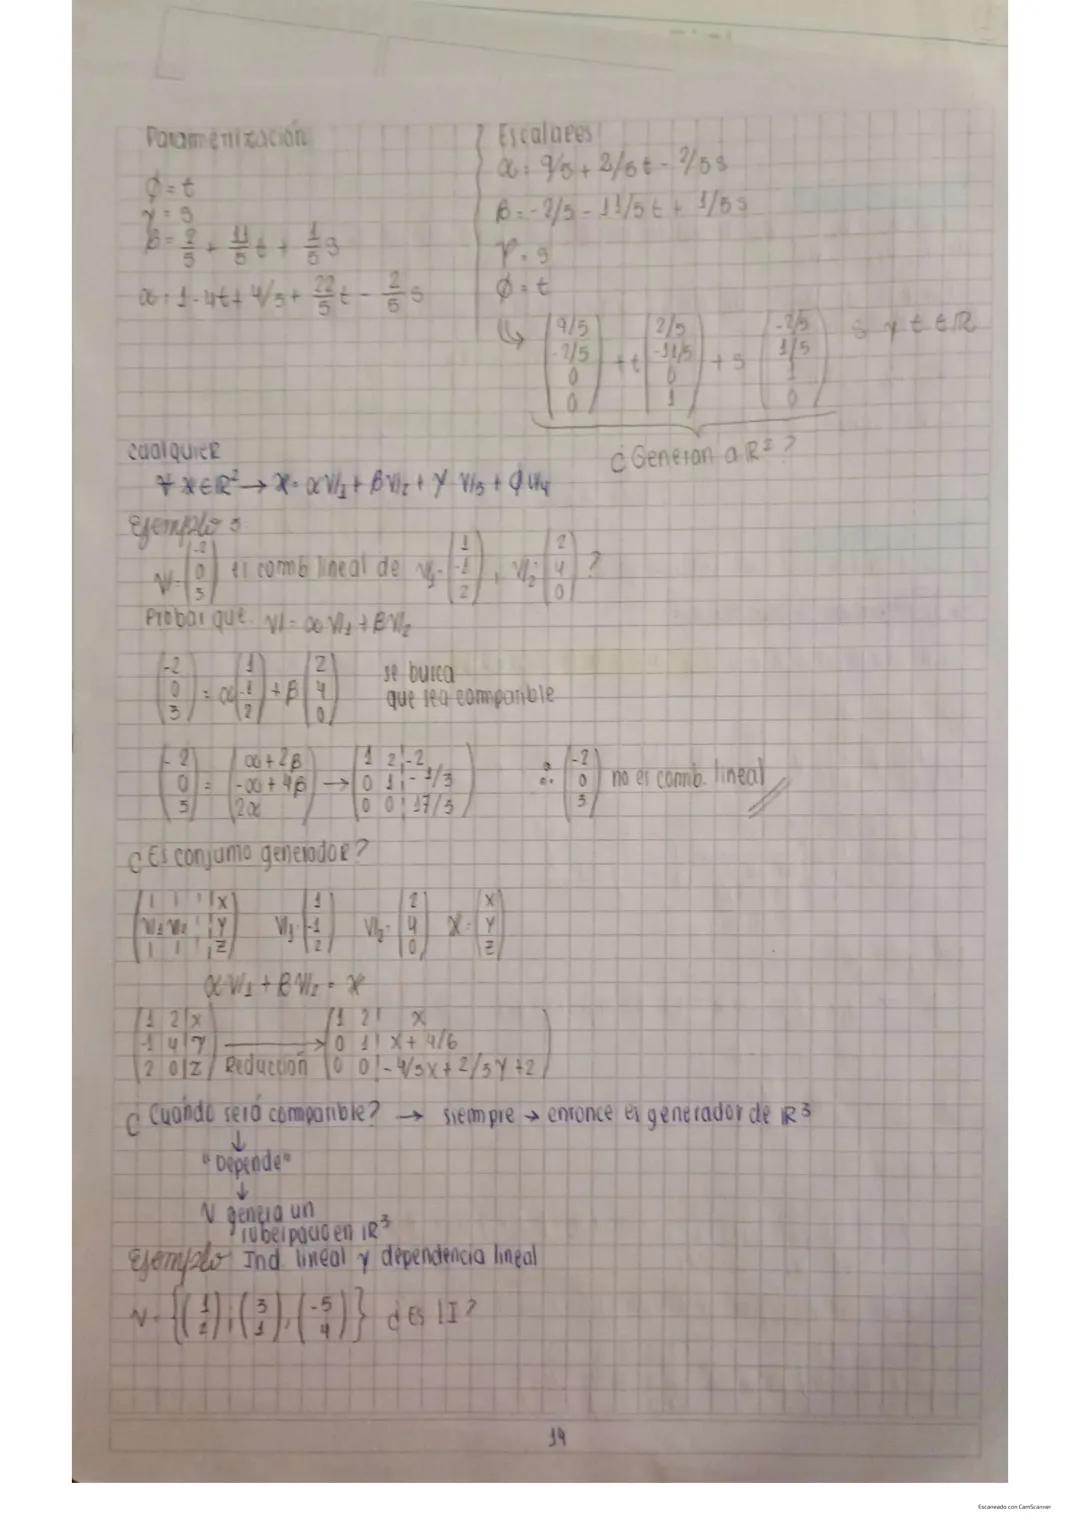 Parametrización
Ø = t
γ = s
β = 2/5 + 11/5 t + 1/5 s
α = 1 - 4t + 4/5 + 22/5 t - 2/5 s
Escalares
α = 9/5 + 2/5 t - 2/5 s
β = -2/5 - 11/5 t + 1/5 s
γ = s
Ø = t
↳ (9/5, -2/5, 0, 0) + t (2/5, -11/5, 0, 1) + s (-2/5, 1/5, 1, 0) s y t ∈ ℝ
¿Generan a ℝ² ?
cualquier
∀ x ∈ ℝ² → x = α V1 + β V2 + γ V3 + Ø V4
Ejemplo:
V = (-2, 0, 3) es comb lineal de V1 = (1, -1, 2), V2 = (2, 4, 0) ?
Probar que V = α V1 + β V2
(-2, 0, 3) = α (1, -1, 2) + β (2, 4, 0) se busca
que sea compatible
(-2, 0, 3) = (α + 2β, -α + 4β, 2α) → (1 2 | -2, 0 1 | -1/3, 0 0 | 17/3) ∴ (-2, 0, 3) no es comb. lineal
¿Es conjunto generador?
(| | | x, V1 V2 | y, | | | z) V1 = (1, -1, 2) V2 = (2, 4, 0) x = (x, y, z)
α V1 + β V2 = x
(1 2 | x, -1 4 | y, 2 0 | z) → Reducción (1 2 | x, 0 1 | x + 4/6, 0 0 | -4/3 x + 2/3 y + 2)
¿Cuándo será compatible? → siempre → entonce es generador de ℝ³
↓
"Depende"
↓
V genera un
subespacio en ℝ³
Ejemplo Ind lineal y dependencia lineal
V = {(1, 2), (3, 1), (-5, 4)} ¿Es LI?
19
Escaneado con CamScanner